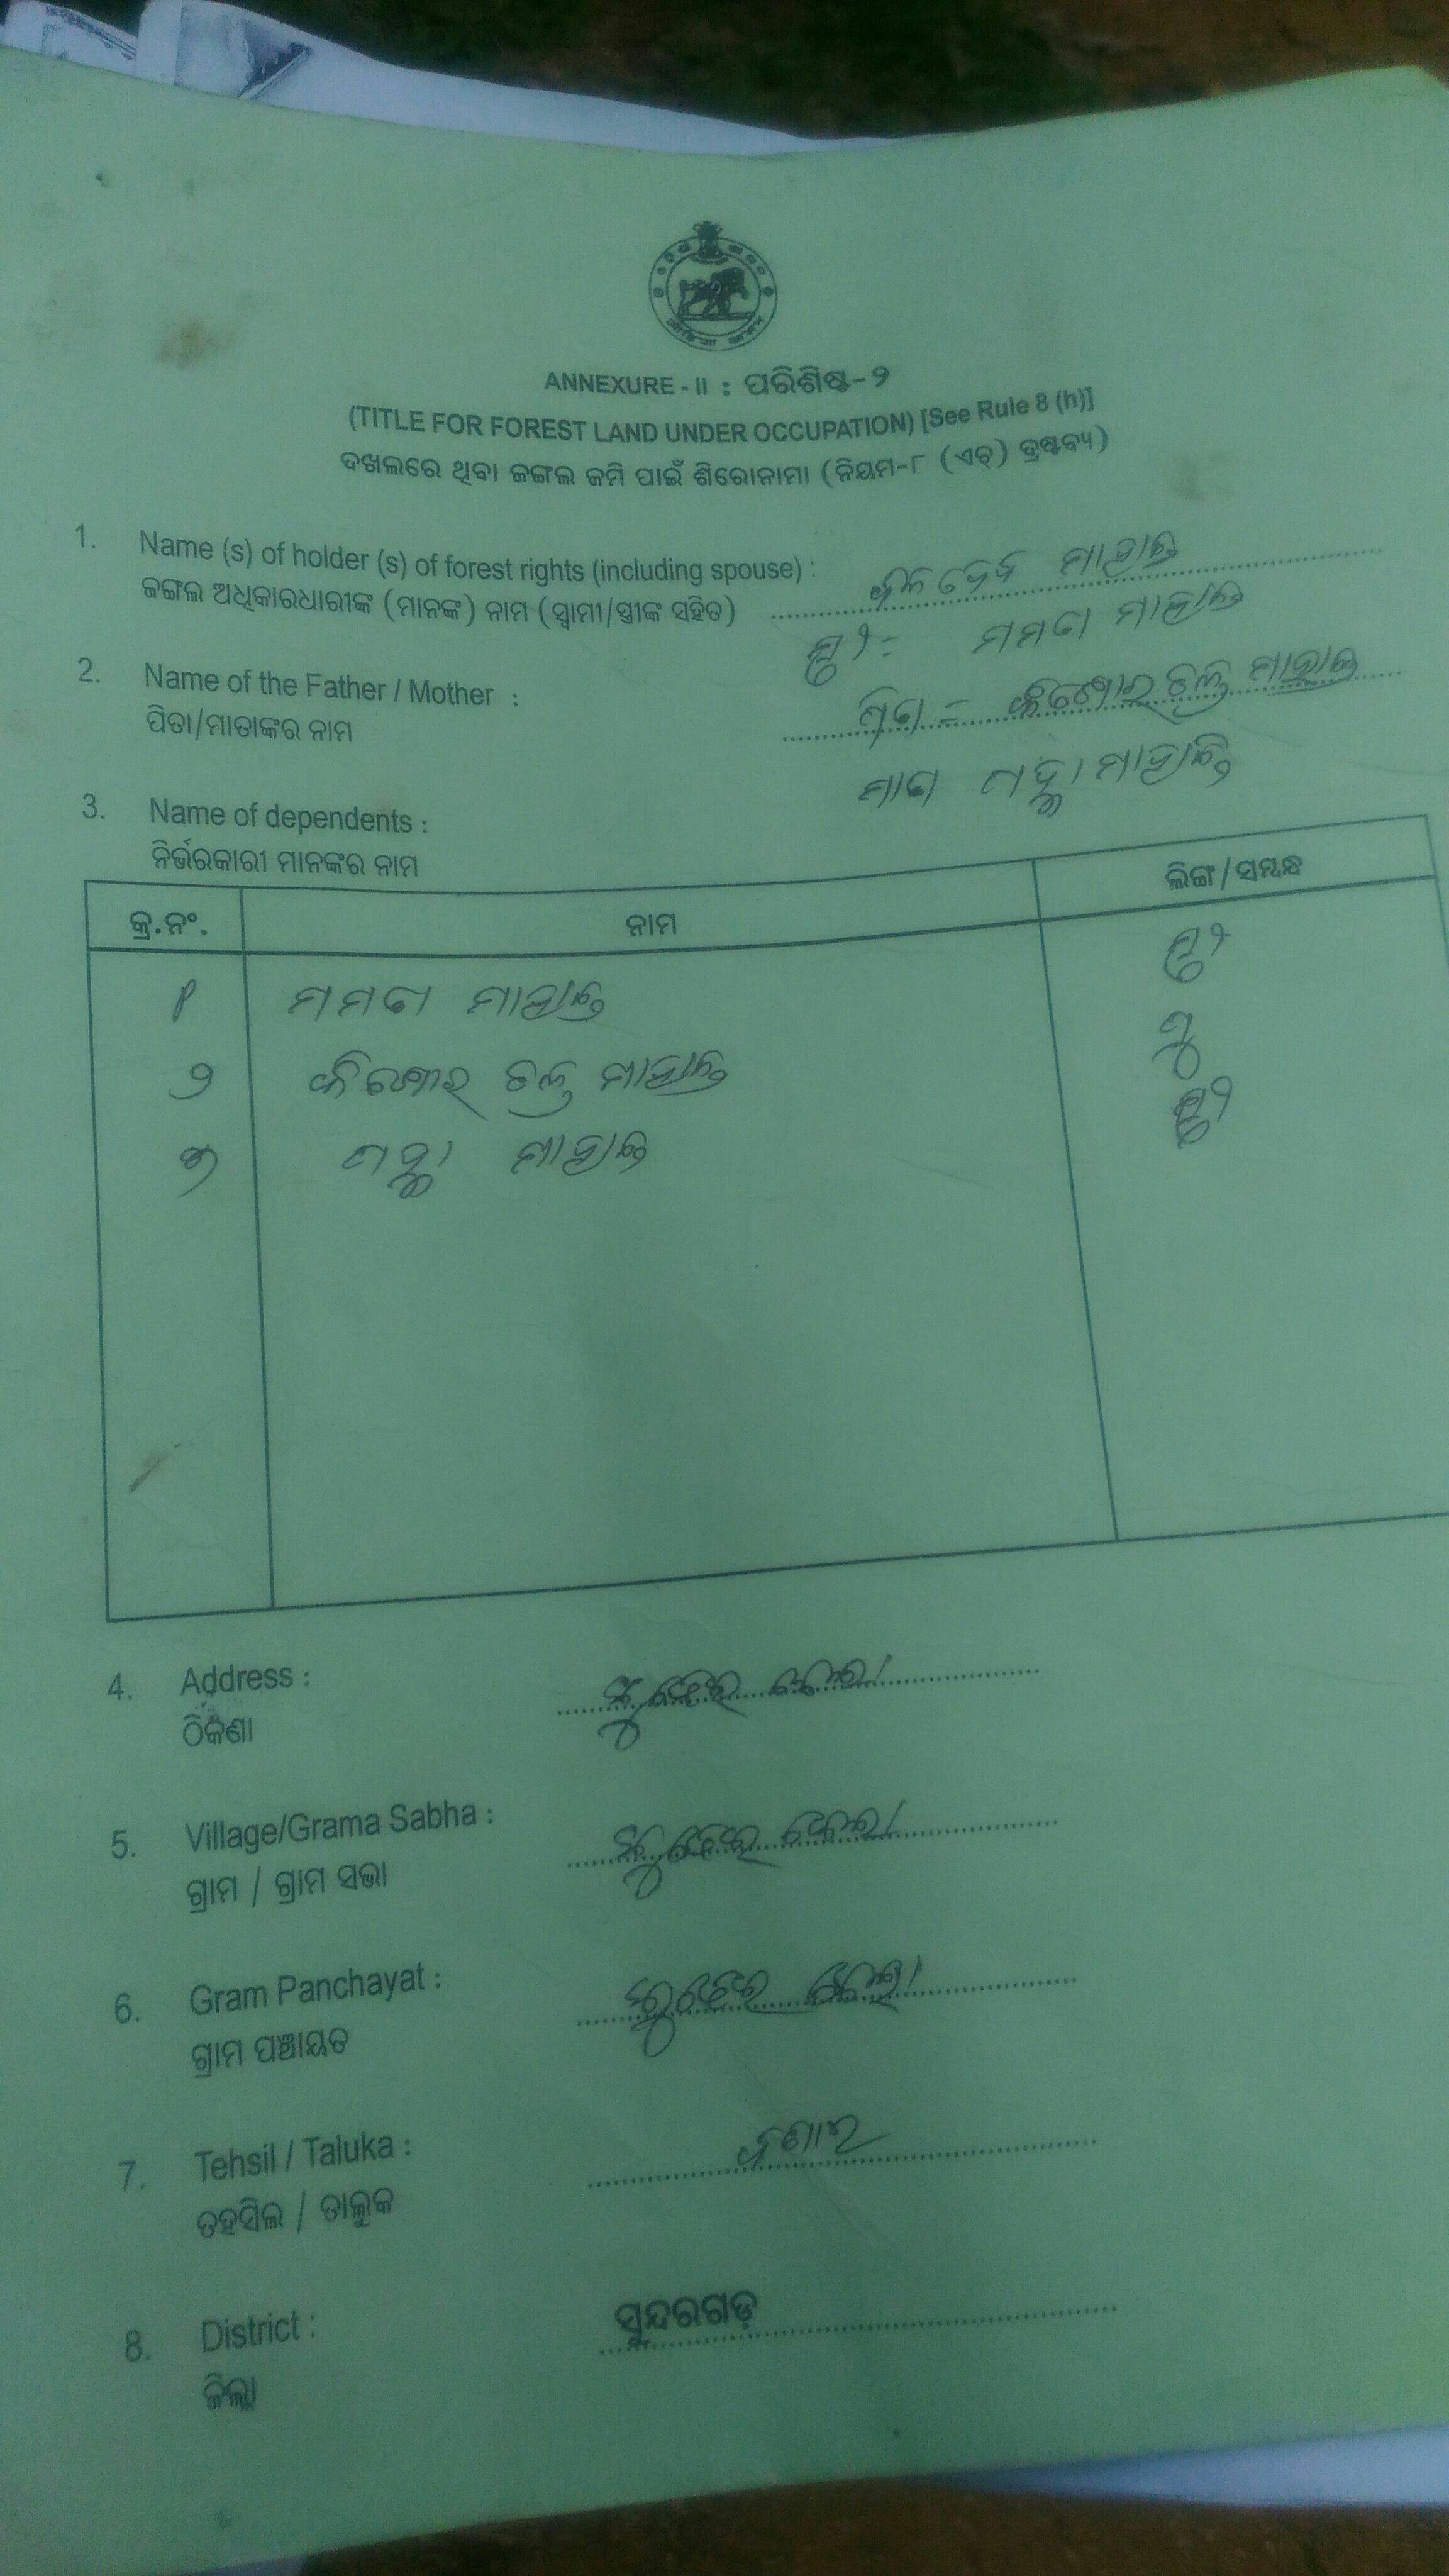 ANNEXURE - II : ପରିଶିଷ୍ଟ-୨
(TITLE FOR FOREST LAND UNDER OCCUPATION) [See Rule 8 (h)]
ଦଖଲରେ ଥିବା ଜଙ୍ଗଲ ଜମି ପାଇଁ ଶିରୋନାମା (ନିୟମ-୮ (ଏଚ୍) ଦ୍ରଷ୍ଟବ୍ୟ)
1. Name (s) of holder (s) of forest rights (including spouse) :
ଜଙ୍ଗଲ ଅଧିକାରଧାରୀଙ୍କ (ମାନଙ୍କ) ନାମ (ସ୍ୱାମୀ/ସ୍ତ୍ରୀଙ୍କ ସହିତ)
ସ୍ତ୍ରୀ - ମମତା ମାହାନ୍ତ
2. Name of the Father / Mother :
ପିତା/ମାତାଙ୍କର ନାମ
ପିତା = କିଶୋର ଚନ୍ଦ୍ର ମାହାନ୍ତ
ମାତା
3. Name of dependents :
ନିର୍ଭରକାରୀ ମାନଙ୍କର ନାମ
କ୍ର.ନଂ. ନାମ ଲିଙ୍ଗ/ସମ୍ବନ୍ଧ
୧ ମମତା ମାହାନ୍ତ ସ୍ତ୍ରୀ
୨ କିଶୋର ଚନ୍ଦ୍ର ମାହାନ୍ତ ପୁ
୩ ମାହାନ୍ତ ସ୍ତ୍ରୀ
4. Address :
ଠିକଣା
5. Village/Grama Sabha :
ଗ୍ରାମ / ଗ୍ରାମ ସଭା
6. Gram Panchayat :
ଗ୍ରାମ ପଞ୍ଚାୟତ
7. Tehsil / Taluka :
ତହସିଲ / ତାଲୁକ
8. District : ସୁନ୍ଦରଗଡ଼
ଜିଲ୍ଲା